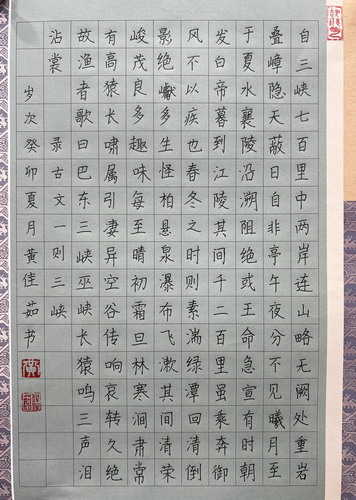 自三峡七百里中两岸连山略无阙处重岩
叠嶂隐天蔽日自非亭午夜分不见曦月至
于夏水襄陵沿溯阻绝或王命急宣有时朝
发白帝暮到江陵其间千二百里虽乘奔御
风不以疾也春冬之时则素湍绿潭回清倒
影绝巘多生怪柏悬泉瀑布飞漱其间清荣
峻茂良多趣味每至晴初霜旦林寒涧肃常
有高猿长啸属引凄异空谷传响哀转久绝
故渔者歌曰巴东三峡巫峡长猿鸣三声泪
沾裳 录古文一则三峡
岁次癸卯夏月黄佳茹书